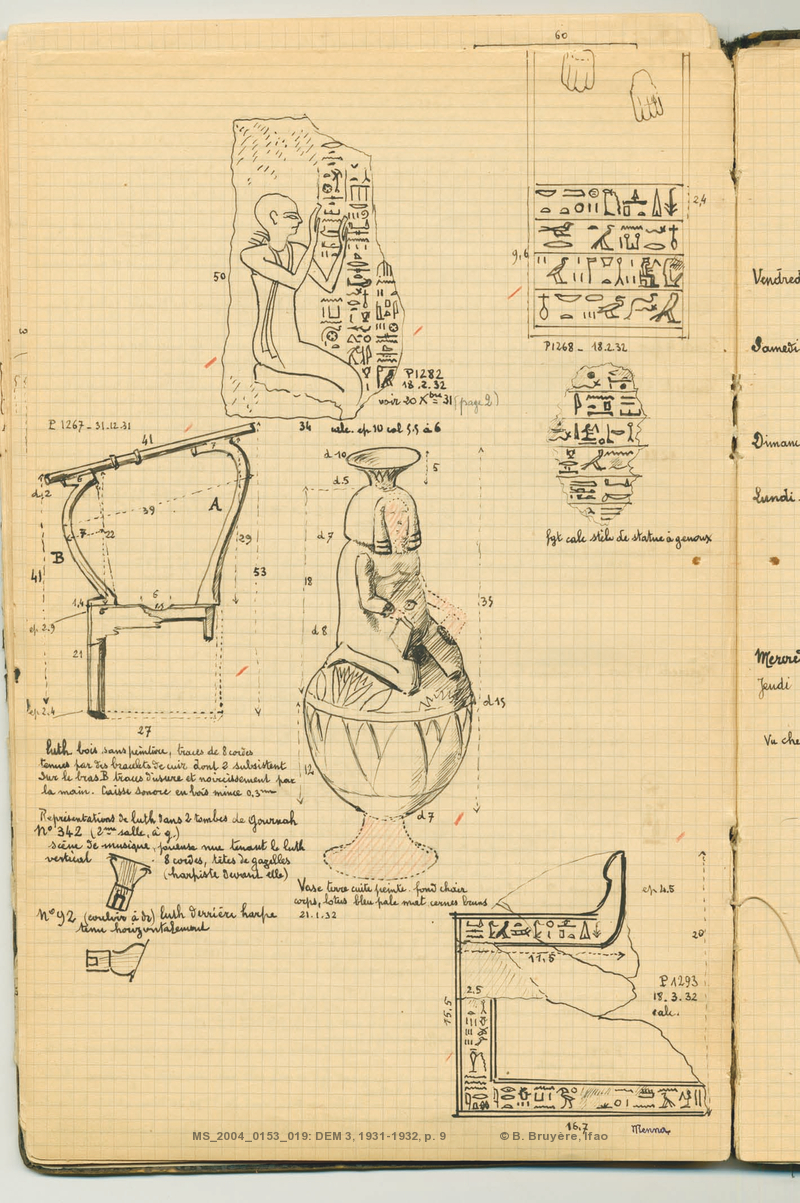 60
2,4
9,6
P1268 _ 18.2.32
50
P1282
18.2.32
voir 20 Xbre 31 (page 2)
34
calc. ep 10 col 5.5 à 6
P 1267 - 31.12.31
41
7
d.2
39
A
7
22
B
29
41
53
1,4
6
ep 2.9
21
ep 2.4
27
d.10
5
d.5
d 7
18
35
d 8
d 15
12
d 7
fgt calc stèle de statue à genoux
Luth bois sans peinture, traces de 8 cordes
tenues par des bracelets de cuir dont 2 subsistent
Sur le bras B traces d'usure et noircissement par
la main. Caisse sonore en bois mince 0,3mm
Représentations de luth dans 2 tombes de Gournah
N° 342 (2me salle, à g.)
scène de musique, joueuse nue tenant le luth
vertical
8 cordes, têtes de gazelles
(harpiste devant elle)
N° 92 (couloir à dr) luth derrière harpe
tenu horizontalement
Vase terre cuite peinte fond chair
corps, lotus bleu pale mat cernes bruns
21.1.32
ep 4.5
20
11,5
P1293
18.3.32
calc.
2.5
15,5
16,7
Menna
Vendred
Samedi
Dimanc
Lundi
Mercre
Jeudi
Vu che
MS_2004_0153_019: DEM 3, 1931-1932, p. 9 © B. Bruyère, Ifao